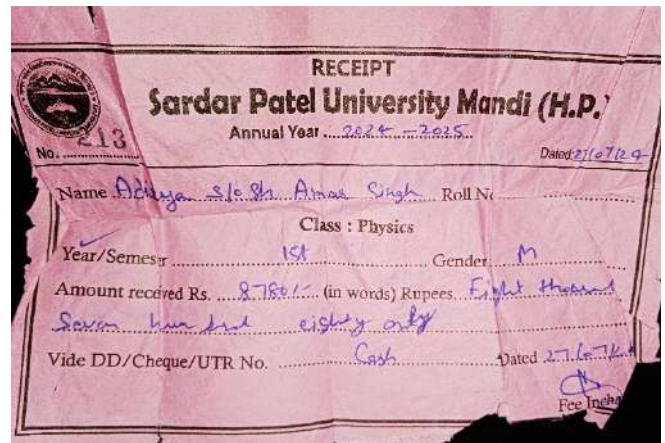 RECEIPT
Sardar Patel University Mandi (H.P.)
Annual Year ... 2024-2025
No. 213
Dated: 27/07/24
Name s/o Sh. Amar Singh Roll No
Class : Physics
Year/Semester 1st Gender M
Amount received Rs. 8780/- (in words) Rupees Eight thousand
Seven hundred eighty only
Vide DD/Cheque/UTR No. Cash Dated 27/07/24
Fee Incha